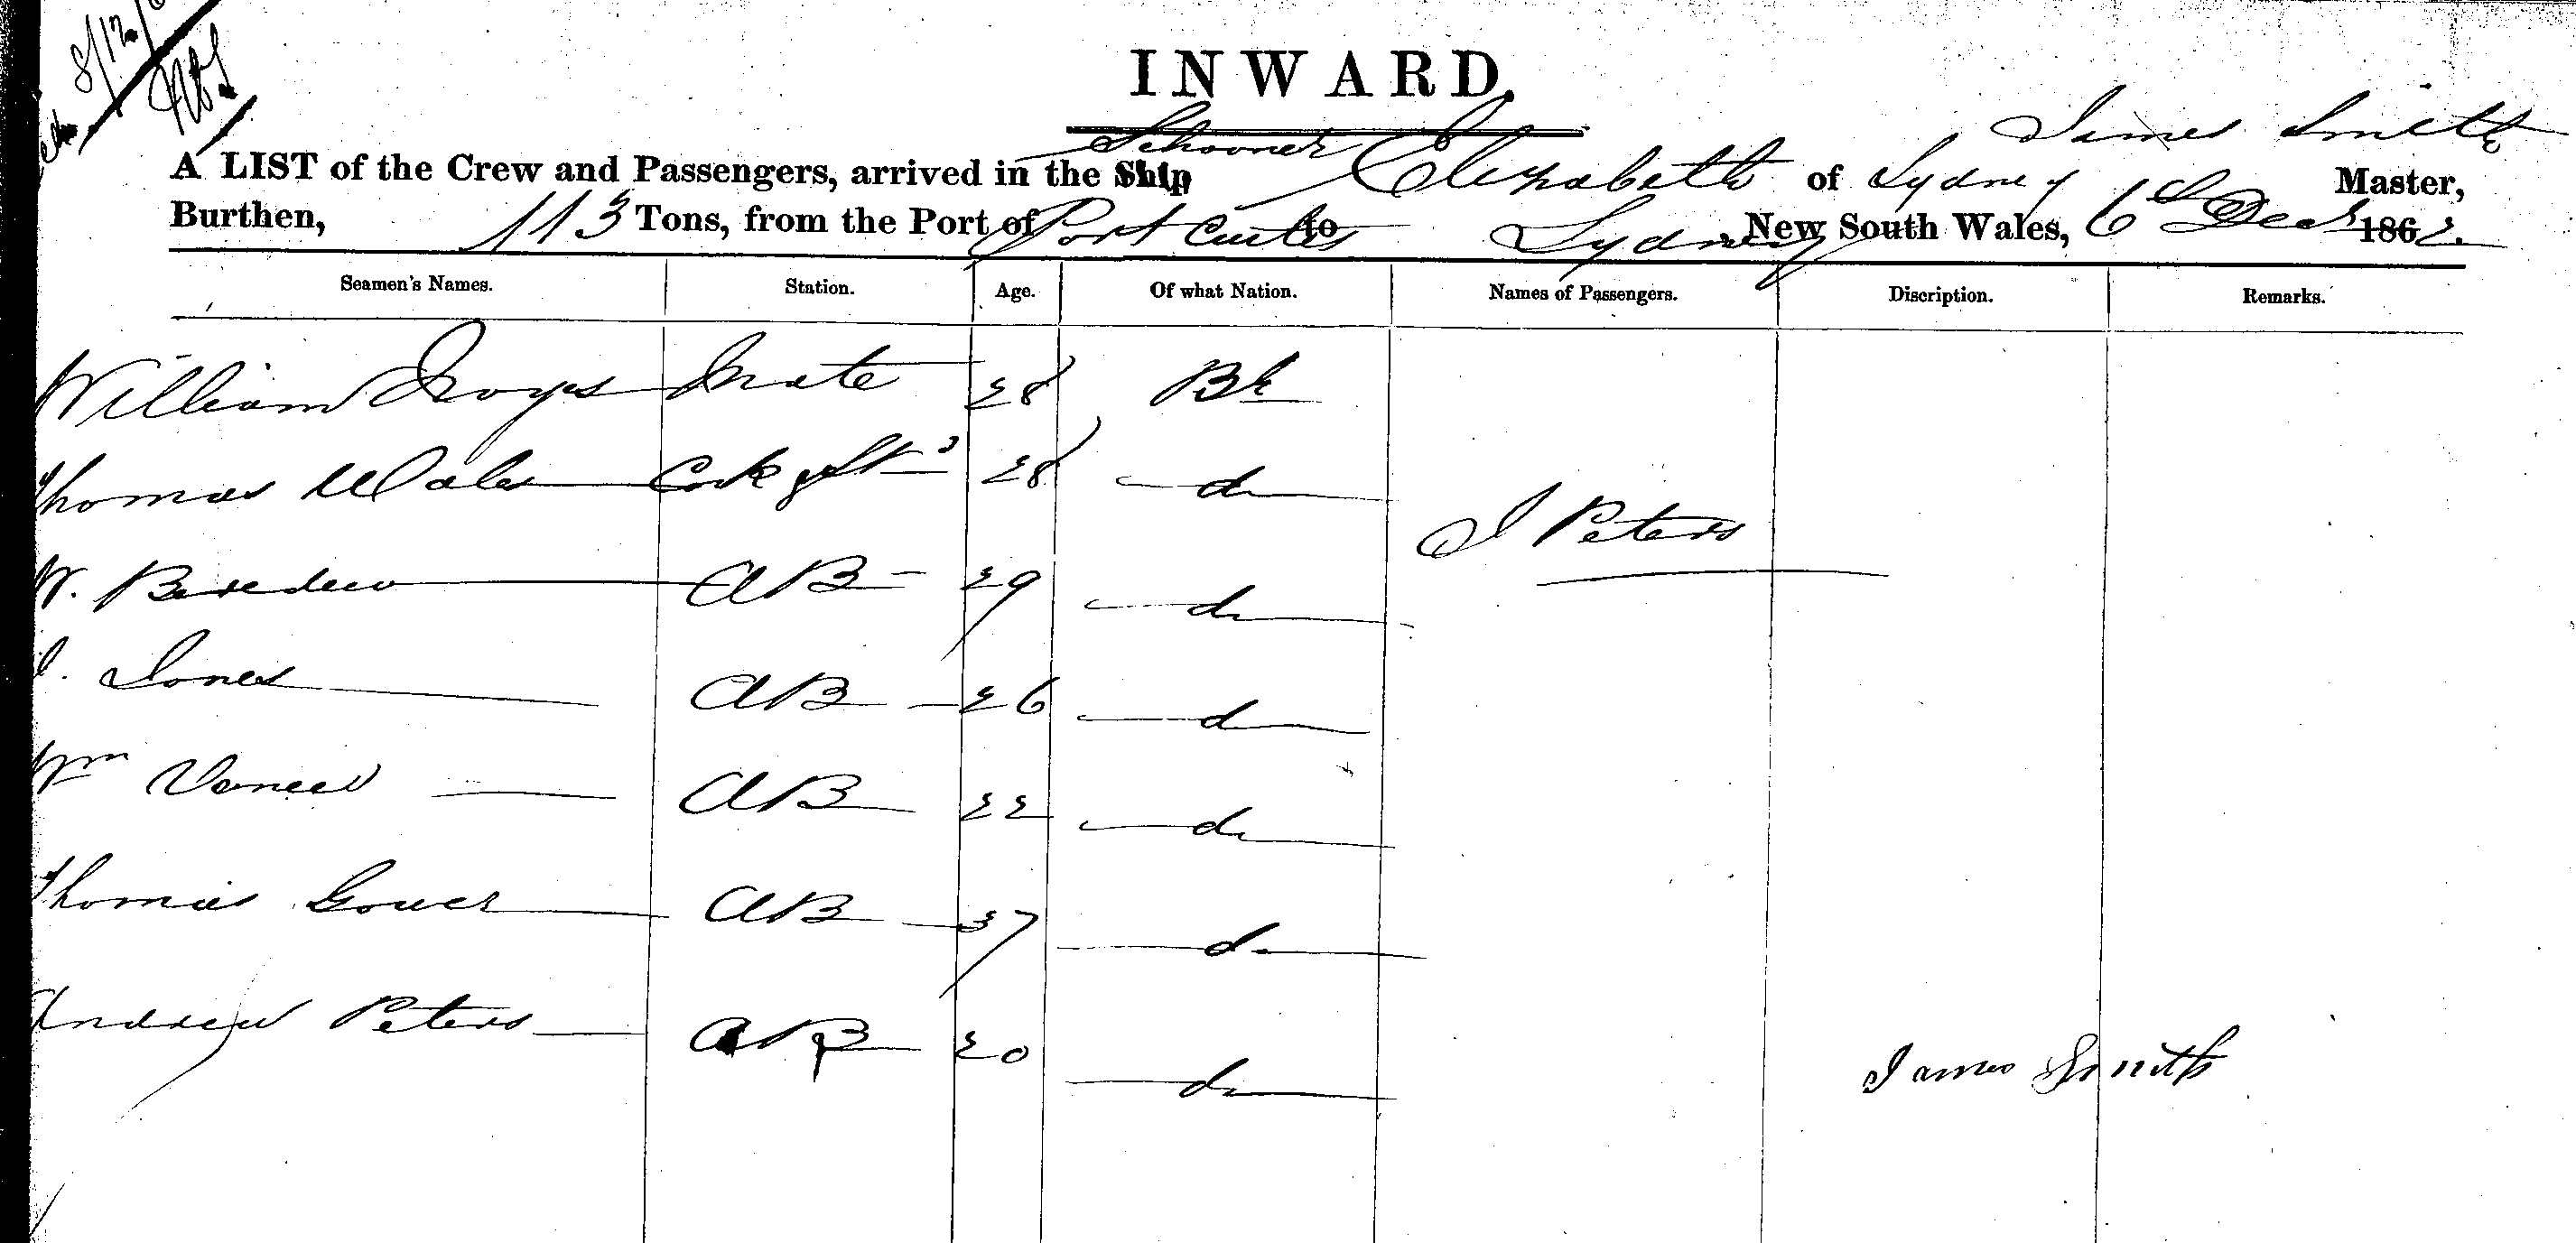 8/12/
INWARD.
Schooner James Smith
A LIST of the Crew and Passengers, arrived in the Ship Elizabeth of Sydney Master,
Burthen, 113 Tons, from the Port of Port Curtis to Sydney New South Wales, 6th Decr 1862.
Seamen's Names. Station. Age. Of what Nation. Names of Passengers. Discription. Remarks.
William Mate 28 Br
Thomas Wales Cook & Std 28 do
J Peters
W. AB 29 do
J. Jones AB 26 do
Wm AB 22 do
Thomas Gower AB 37 do
Andrew Peters AB 20 do
James Smith